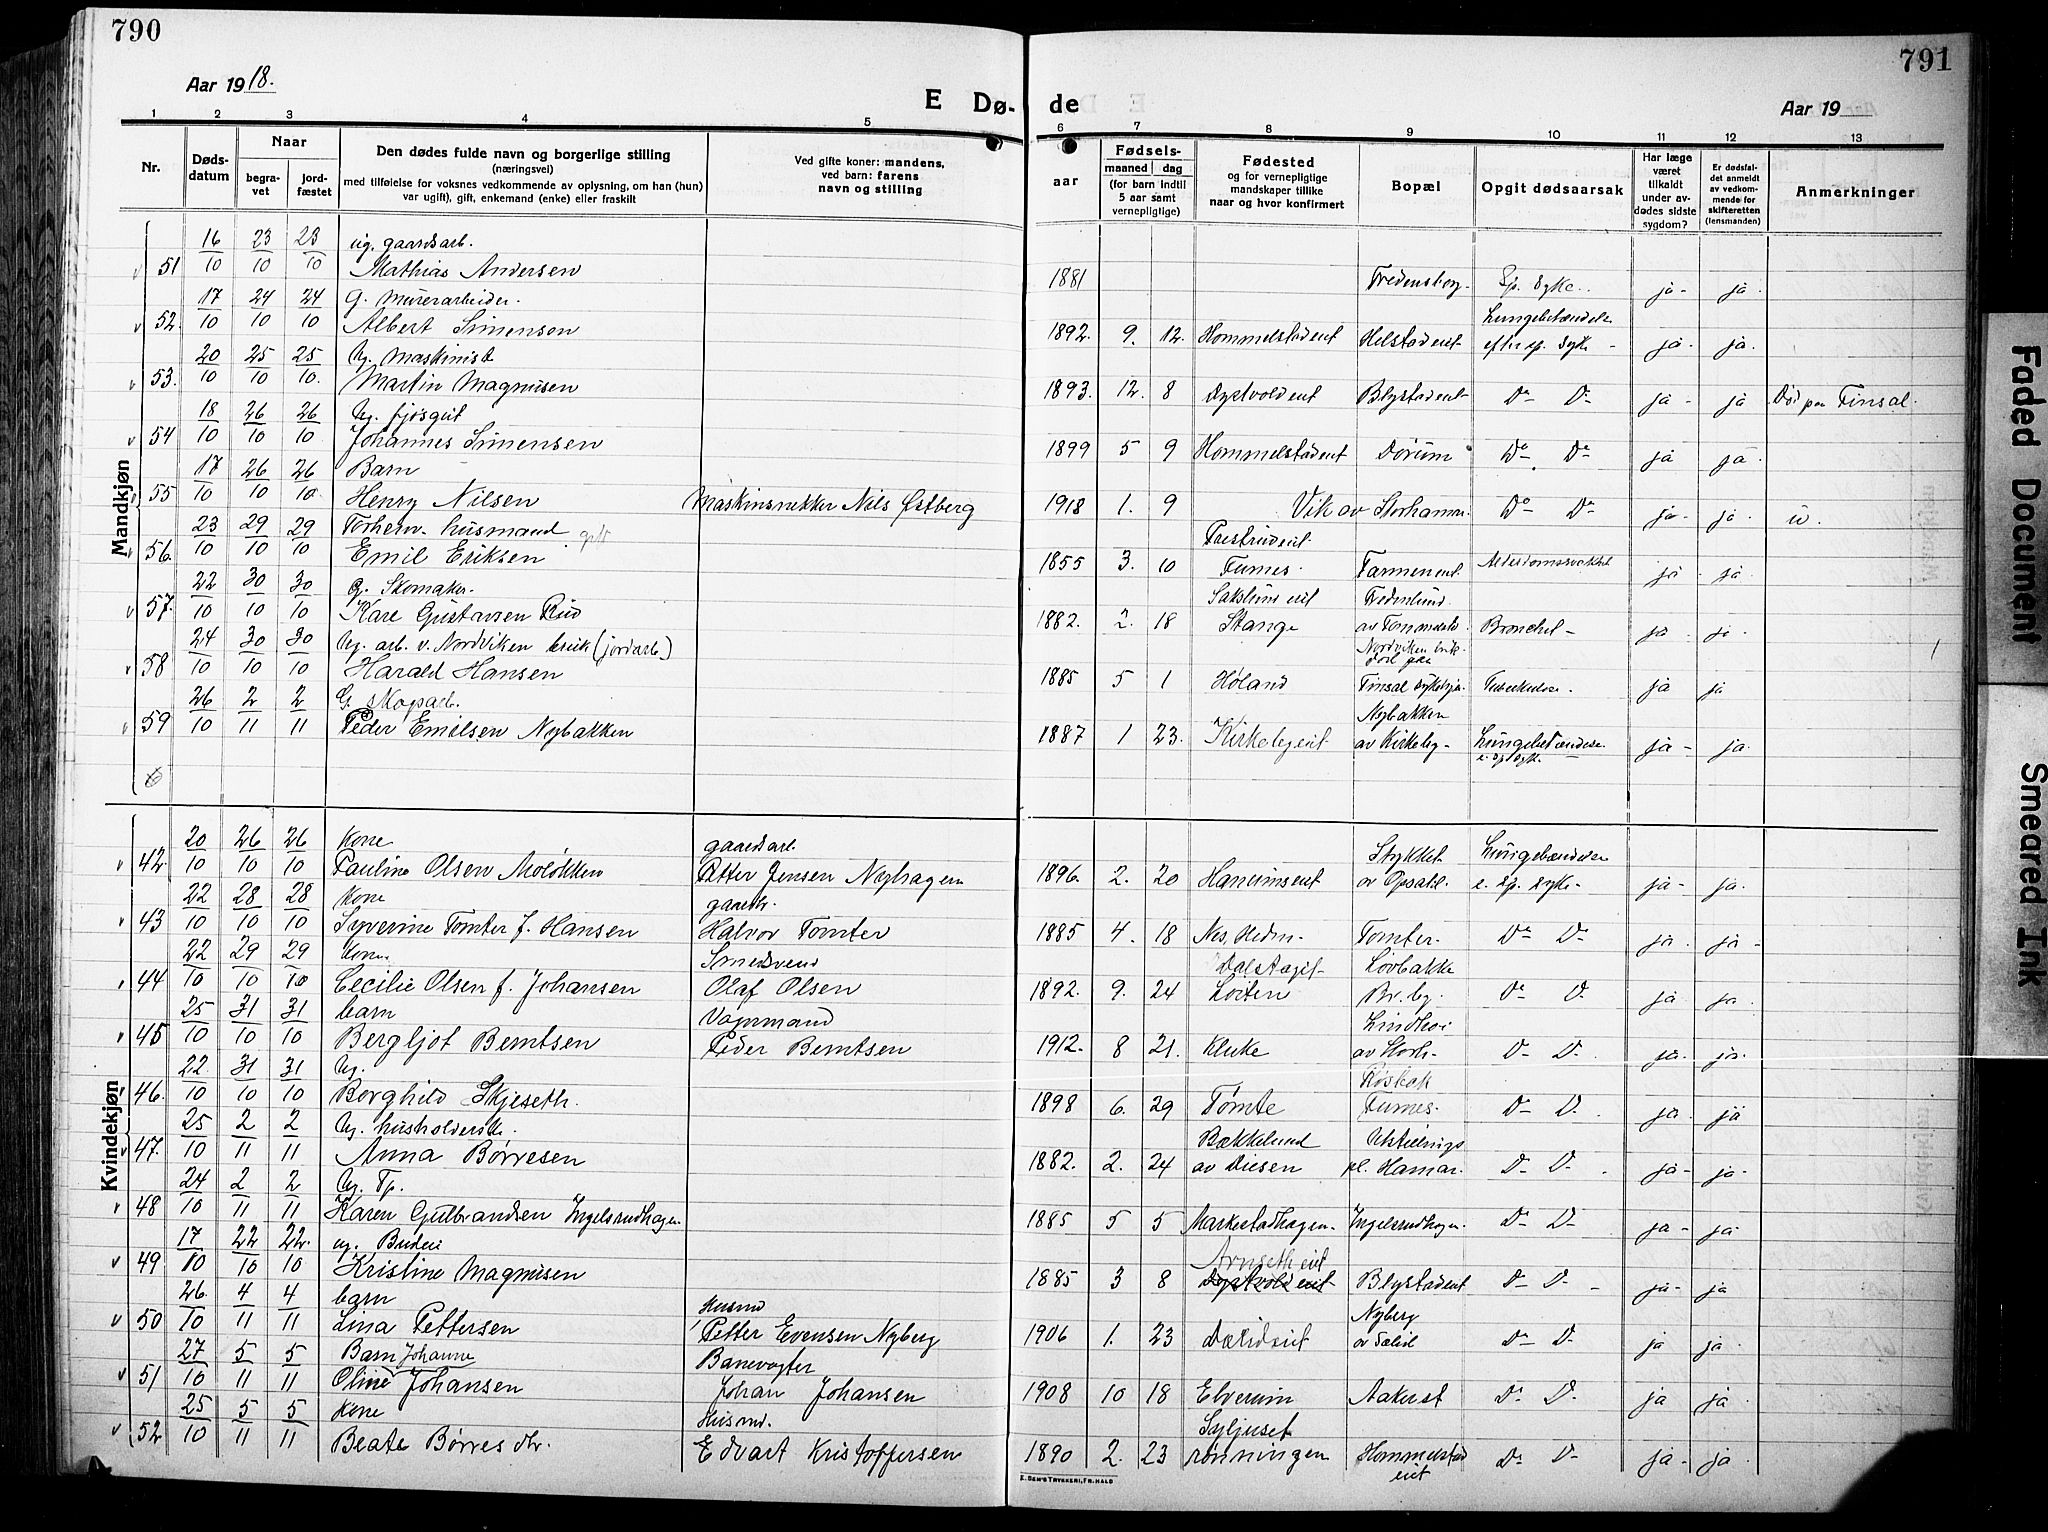 790
Aar 1918.
E Dø-
1 2 3 4 5
Nr.
Døds-
datum
Naar
begra-
vet
jord-
fæstet
Den dødes fulde navn og borgerlige stilling
(næringsvei)
med tilføielse for voksnes vedkommende av oplysning, om han (hun)
var ugift), gift, enkemand (enke) eller fraskilt
Ved gifte koner: mandens,
ved barn: farens
navn og stilling
791
de
Aar 19
6 7 8 9 10 11 12 13
aar
Fødsels-
maaned dag
(for barn indtil
5 aar samt
vernepligtige)
Fødested
og for vernepligtige
mandskaper tillike
naar og hvor konfirmert
Bopæl
Opgit dødsaarsak
Har læge
været
tilkaldt
under av-
dødes sidste
sygdom?
Er dødsfal-
det anmeldt
av vedkom-
mende for
skifteretten
(lensmanden)
Anmerkninger
Mandkjøn
16 23 23 ug. gaardsarb.
51 10 10 10 Mathias Andersen 1881 Fredensborg. Sp. Syke. ja - ja
17 24 24 G. Murerarbeider. Lungebetændelse
52. 10 10 10 Albert Simenson 1892. 9. 12. Hommelstadeiet Helstadeiet efter sp. Syke - ja. ja.
20 25 25 Ug. Maskinist
53. 10 10 10. Martin Magnusen 1893. 12. 8 Dystvoldeiet Blystadeiet Do Do ja - ja Død paa Finsal.
18 26 26 Ug. fjøsgut
54 10 10 10 Johannes Simensen 1899 5 9 Hommelstadeiet Dørum Do Do ja ja
17 26 26 Barn
55 10 10 10 Henry Nilsen Maskinsnekker Nils Østberg 1918 1. 9 Vik av Storhamar. Do Do ja - ja u.
23 29 29 Forhenv. husmand gift Prestrudeiet
56. 10 10 10 Emil Eriksen 1855 3. 10 Furnes. Farmeneiet. Alderdomssvakhet ja. ja.
22 30 30 G. Skomaker. Fredenlund
57. 10 10 10 Kare Gustavsen Rud 1882. 2. 18 Stange Bronchit - ja - ja -
24 30 30 Ug. arb. v. Nordviken bruk (jordarb.) Nordviken bruk
død paa
58 10 10 10 Harald Hansen 1885 5 1 Høland Finsal Sykehjem. Tuberkulose. ja ja
26 2 2 G. Skogarb. Nybakken
59 10 11 11 Peder Emilsen Nybakken 1887 1 23. Kirkebyeiet av Kirkeby - Lungebetændelse ja - ja.
e. sp. syk.
Kvindekjøn
20 26 26 Kone gaardsarb. Stykket Lungebetændelse
42 10 10 10 Pauline Olsen Moløkken Petter Jensen Nyhagen 1896. 2. 20 Hanumseiet av Opsahl. e. Sp. Syke - ja - ja.
22 28 28 Kone gaardbr.
43 10 10 10 Syverine Tomter f. Hansen Halvor Tomter 1885 4. 18 Nes, Hedm. Tomter. Do Do ja - ja -
22 29 29 Kone Smedsvend Løvbakke
44 10 10 10 Cecilie Olsen f. Johansen Olaf Olsen 1892. 9. 24 Løiten Br.by. Do D. ja - ja.
25 31 31 barn Vognmand
45 10 10 10 Bergljot Berntsen Peder Berntsen 1912. 8 21. Kluke av Storh- D - D - ja. ja.
22 31 31 Ug. Rosbak
46. 10 10 10 Borghild Skjeseth. 1898 6. 29 Tømte Furnes. D - D. ja. ja
25 2 2 Ug. husholderske Bækkelund Utstillings
47. 10 11 11 Anna Børresen 1882. 2. 24 av Diesen pl. Hamar. D - D - ja - ja -
24 2 2 Ug. Tp.
48 10 11 11 Karen Gulbrandsen Ingelsrudhagen 1885 5 5 Markestadhagen. Ingelsrudhagen. D - D - ja - ja
17 22 22. ug. Budeie Arnsetheiet
49 10 10 10 Kristine Magnusen 1885 3 8 Dystvoldeiet Blystadeiet D - D - ja - ja
26. 4 4 barn Husmd Nyberg
50 10 11 11 Lina Pettersen Petter Evensen Nyberg 1906 1. 23 Dælideiet av Dælid D - D - ja ja.
27 5 5 Barn Johanne Banevogter
51 10 11 11 Oline Johansen Johan Johansen 1908 10 18 Elverum Aakerst D - D. ja ja
25 5 5 Kone Husmd. Syljuset
52. 10 11 11 Beate Børres dtr. Edvart Kristoffersen 1890 2. 23 rønningen Hommelstad D - D. ja - ja.
eiet
E. SEM'S TRYKKERI, FR.HALD
Faded Document
Smeared Ink